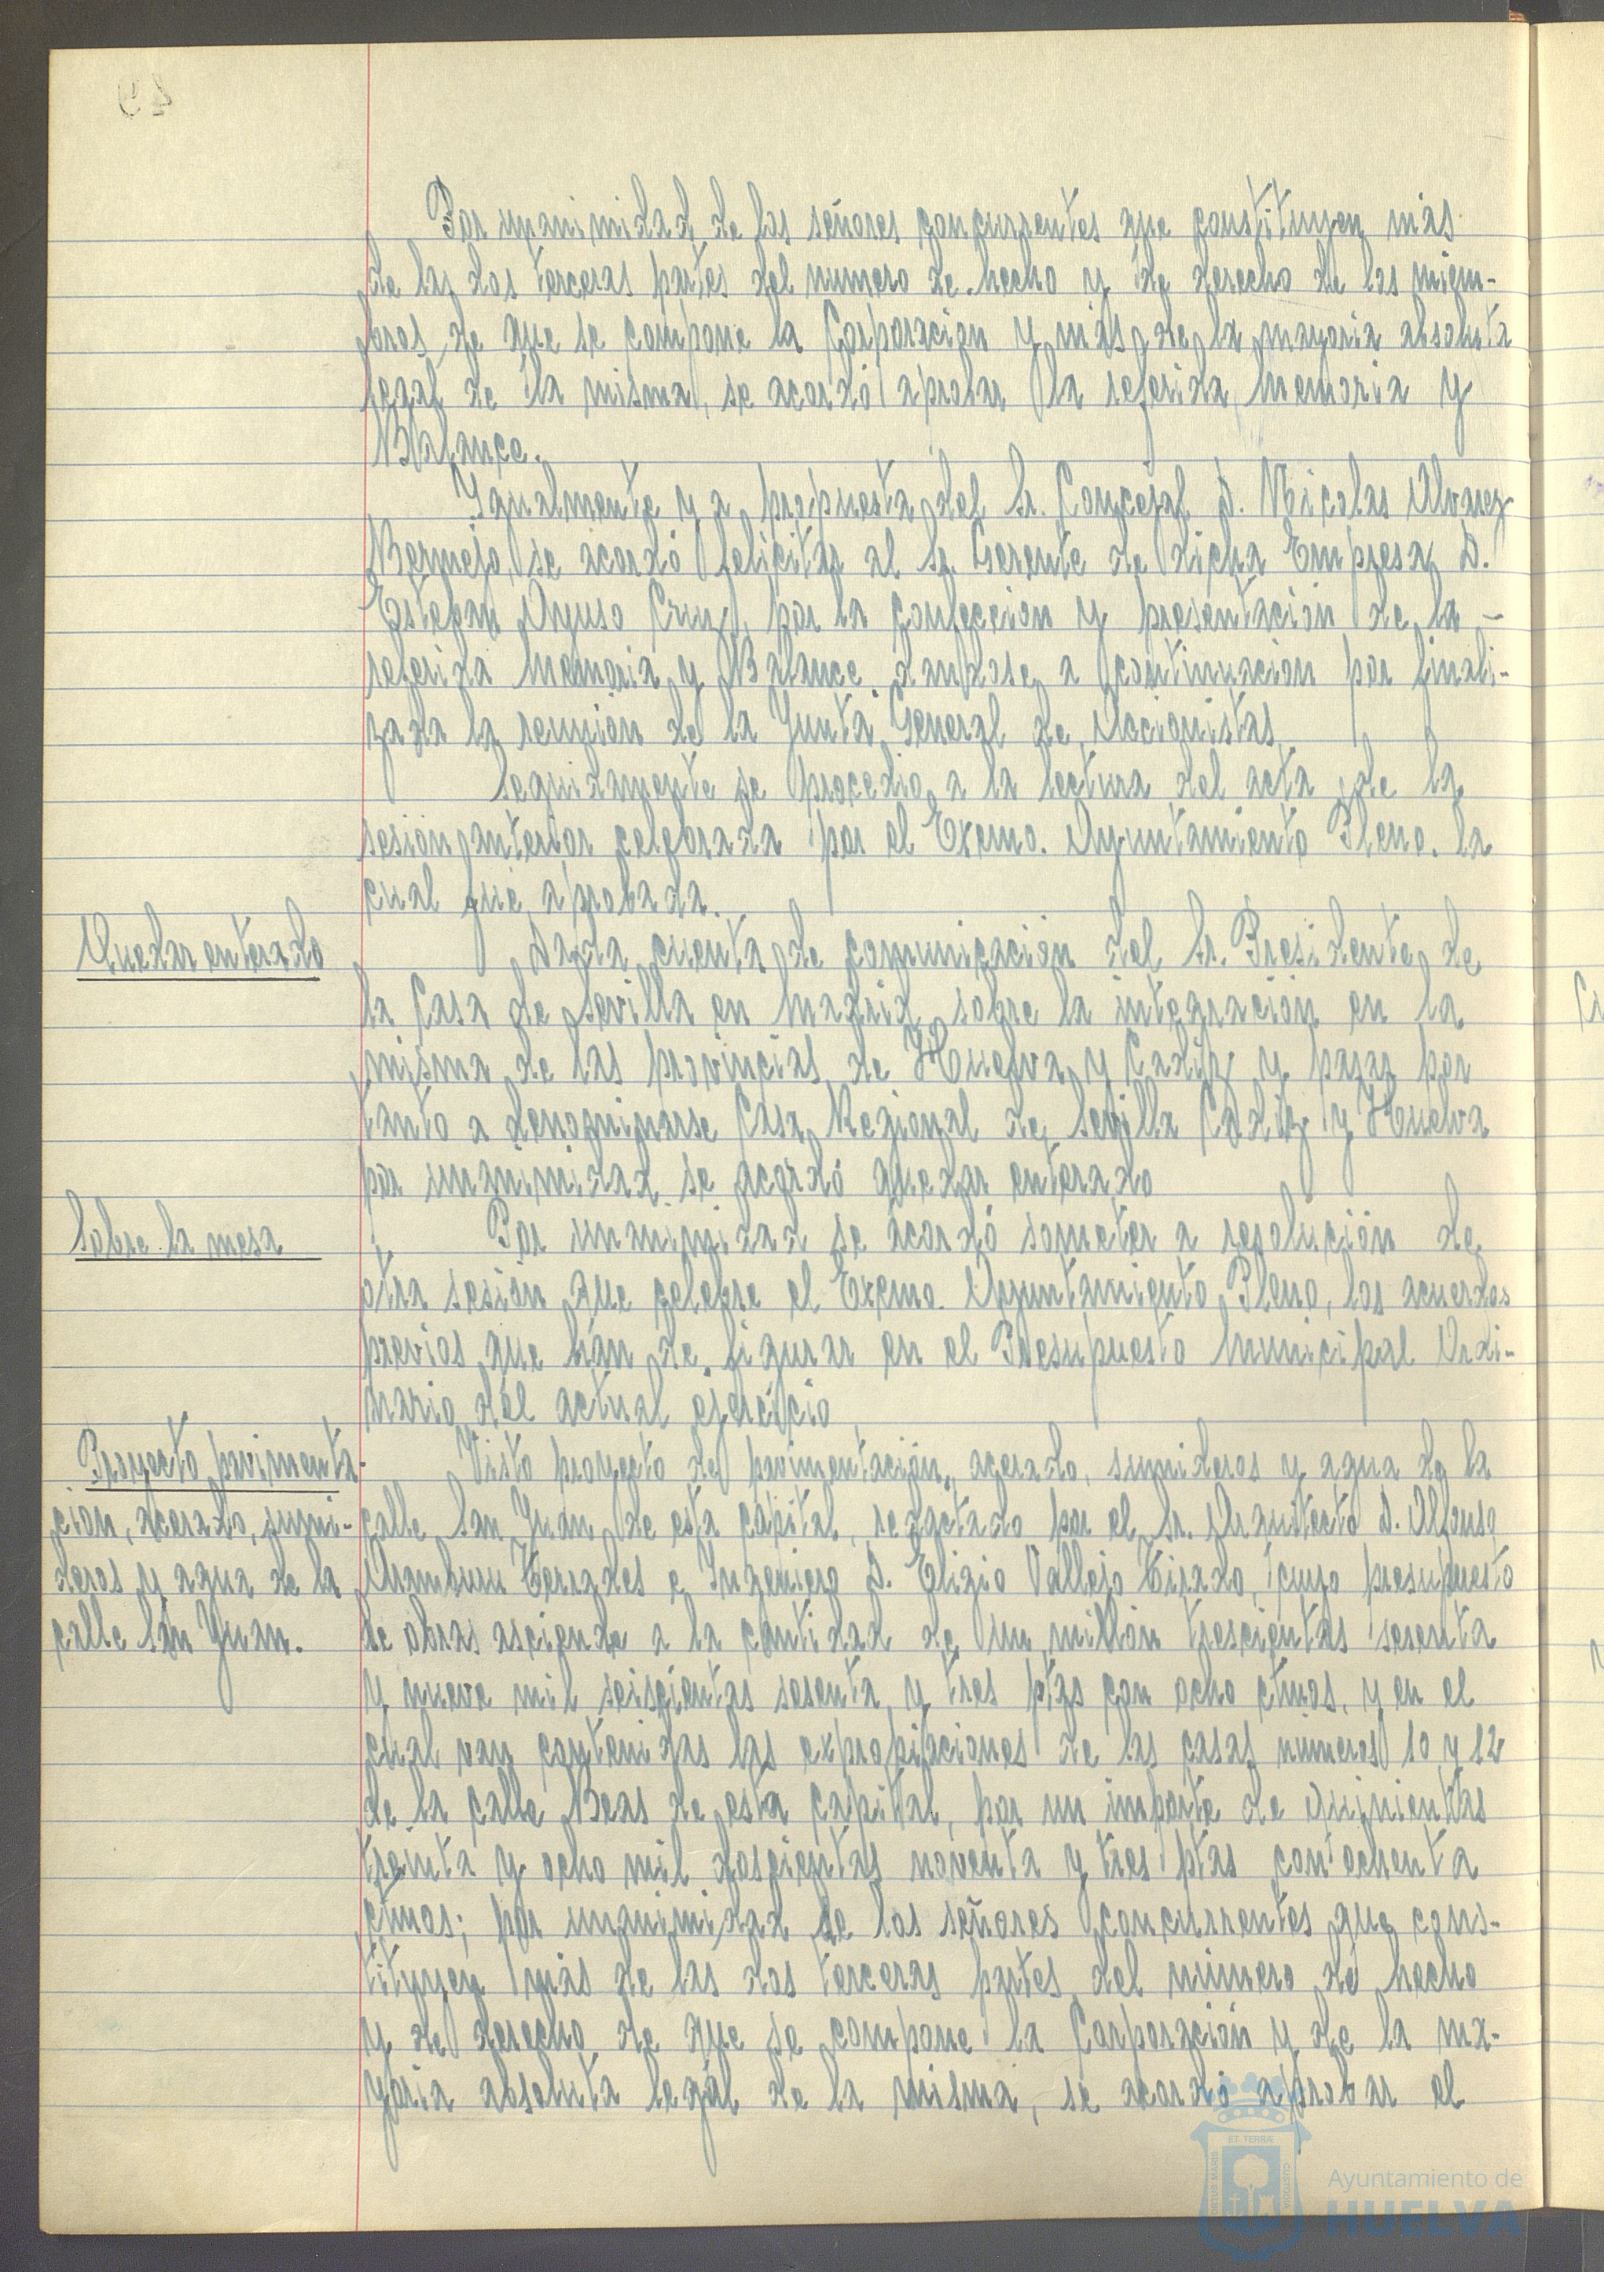 Por unanimidad de los señores concurrentes que constituyen más
de las dos terceras partes del numero de hecho y de derecho de los miem-
bros de que se compone la Corporacion y más de la mayoria absoluta
legal de la misma, se acordó aprobar la referida Memoria y
Balance.
Igualmente y a propuesta del Sr. Concejal D. Nicolas Alvarez
Bermejo, se acordó felicitar al Sr. Gerente de dicha Empresa D.
Esteban Ayuso Cruz, por la confeccion y presentacion de la -
referida Memoria y Balance, dandose a continuacion por finali-
zada la reunion de la Junta General de Accionistas
Seguidamente se procedio a la lectura del acta de la
sesion anterior celebrada por el Excmo. Ayuntamiento Pleno. la
cual fué aprobada.
Quedar enterado
Dada cuenta de comunicacion del Sr. Presidente de
la Casa de Sevilla en Madrid sobre la integracion en la
misma de las provincias de Huelva y Cadiz y pasar por
tanto a denominarse Casa Regional de Sevilla Cadiz y Huelva
por unanimidad se acordó quedar enterado
Sobre la mesa
Por unanimidad se acordó someter a resolución de
otra sesión que celebre el Excmo. Ayuntamiento Pleno, los acuerdos
previos que han de figurar en el Presupuesto Municipal Ordi-
nario del actual ejercicio
Proyecto pavimenta-
cion, acerado, sumi-
deros y agua de la
calle San Juan.
Visto proyecto de pavimentación, acerado, sumideros y agua de la
calle San Juan de esta capital, redactado por el Sr. Arquitecto D. Alfonso
Aramburu Terrades e Ingeniero D. Eligio Vallejo Tirado, cuyo presupuesto
de obras asciende a la cantidad de un millón trescientas sesenta
y nueve mil seiscientas sesenta y tres ptas con ocho ctmos, y en el
cual van contenidas las expropiaciones de las casas números 10 y 12
de la calle Beas de esta capital, por un importe de quinientas
treinta y ocho mil doscientas noventa y tres ptas con ochenta
ctmos; por unanimidad de los señores concurrentes que cons-
tituyen más de las dos terceras partes del número de hecho
y de derecho de que se compone la Corporación y de la ma-
yoria absoluta legal de la misma, se acordó aprobar el
Ayuntamiento de
HUELVA